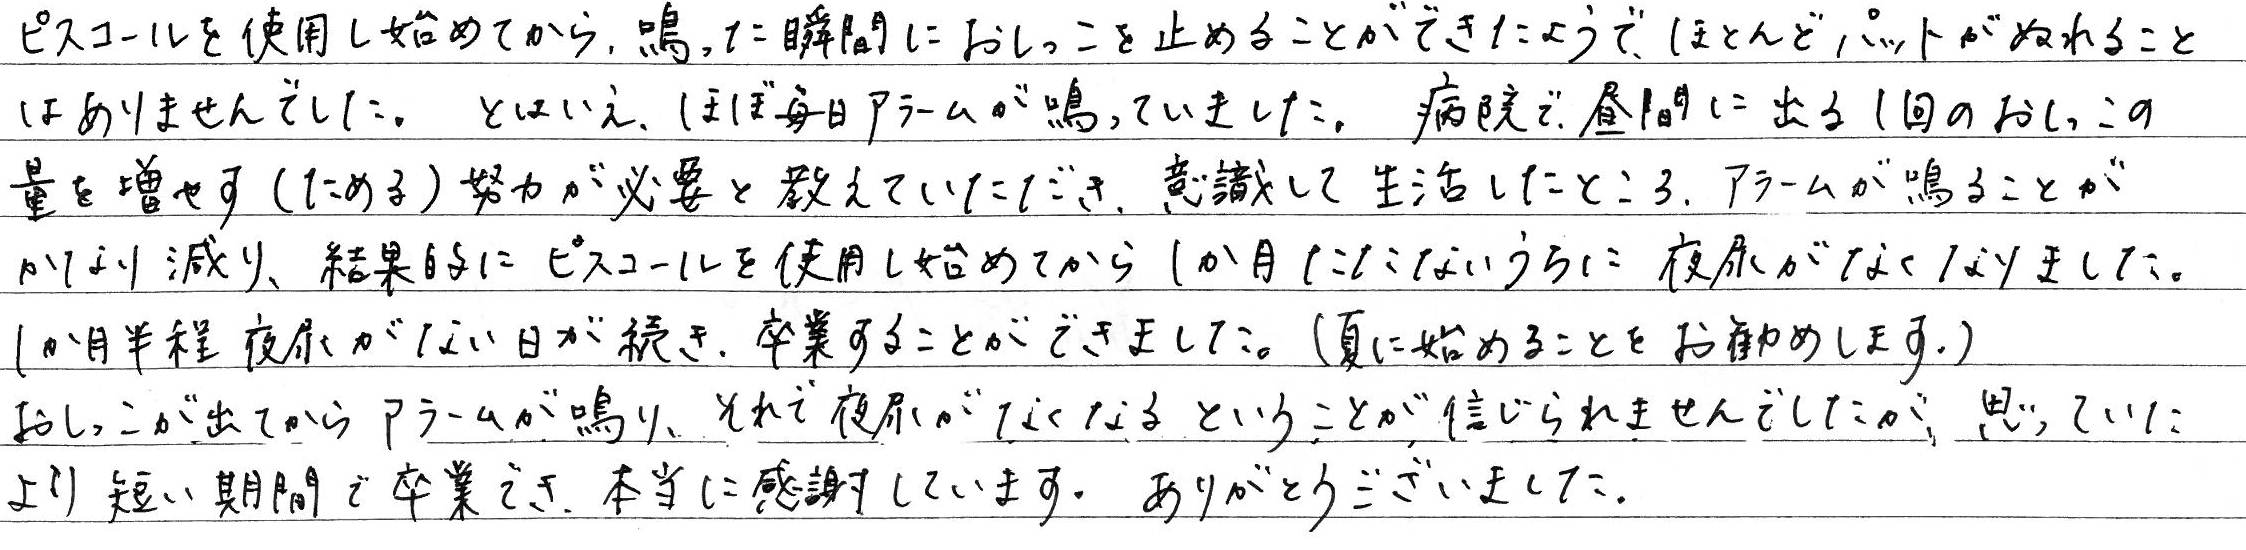 ピスコールを使用し始めてから、鳴った瞬間におしっこを止めることができたようで、ほとんどパットがぬれること
はありませんでした。 とはいえ、ほぼ毎日アラームが鳴っていました。 病院で、昼間に出る1回のおしっこの
量を増やす(ためる)努力が必要と教えていただき、意識して生活したところ、アラームが鳴ることが
かなり減り、結果的にピスコールを使用し始めてから1か月たたないうちに夜尿がなくなりました。
1か月半程夜尿がない日が続き、卒業することができました。(夏に始めることをお勧めします。)
おしっこが出てからアラームが鳴り、それで夜尿がなくなるということが信じられませんでしたが、思っていた
より短い期間で卒業でき、本当に感謝しています。 ありがとうございました。